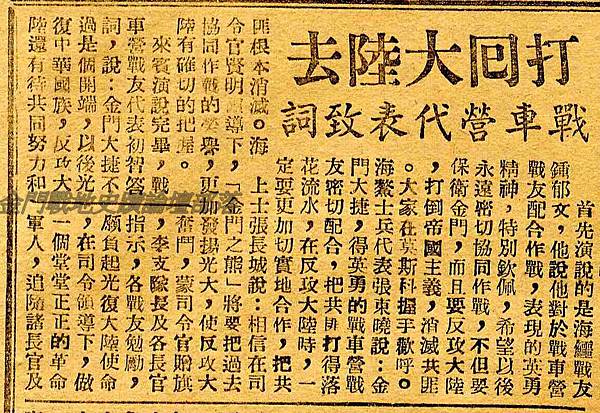 打回大陸去
戰車營代表致詞
首先演說的是海鱷戰友
鍾郁文,他說他對於戰車營
戰友配合作戰,表現的英勇
精神,特別欽佩,希望以後
永遠密切協同作戰,不但要
保衛金門,而且要反攻大陸
,打倒帝國主義,消滅共匪
。大家在莫斯科握手歡呼。
海鰲士兵代表張東曉說:金
門大捷,得英勇的戰車營戰
友密切配合,把共匪打得落
花流水,在反攻大陸時,一
定要更加切實地合作,把共
匪根本消滅。海 上士張長城說:相信在司
令官賢明 導下,「金門之熊」將要把過去
協同作戰的 譽,更加發揚光大,使反攻大
陸有確切的把握。
來賓演說完畢,戰
車營戰友代表初智答
詞,說:金門大捷不
過是個開端,以後光
復中華國族,反攻大
陸還有待共同努力和
奮鬥,蒙司令官贈旗
,李支隊長及各長官
指示,各戰友勉勵,
願負起光復大陸使命
,在司令領導下,做
一個堂堂正正的革命
軍人,追隨諸長官及
金門戰地史蹟論壇